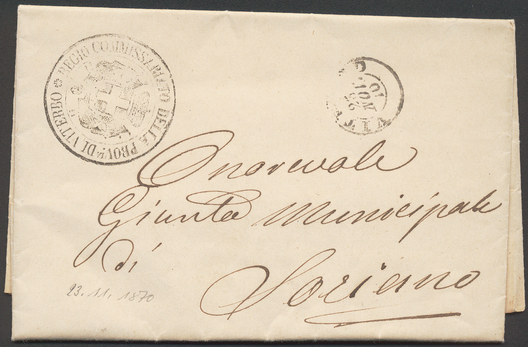 REGIO COMMISSARIATO DELLA PROV.ᴬ DI VITERBO
Onorevole
Giunta Municipale
di
Soriano
23.11.1870